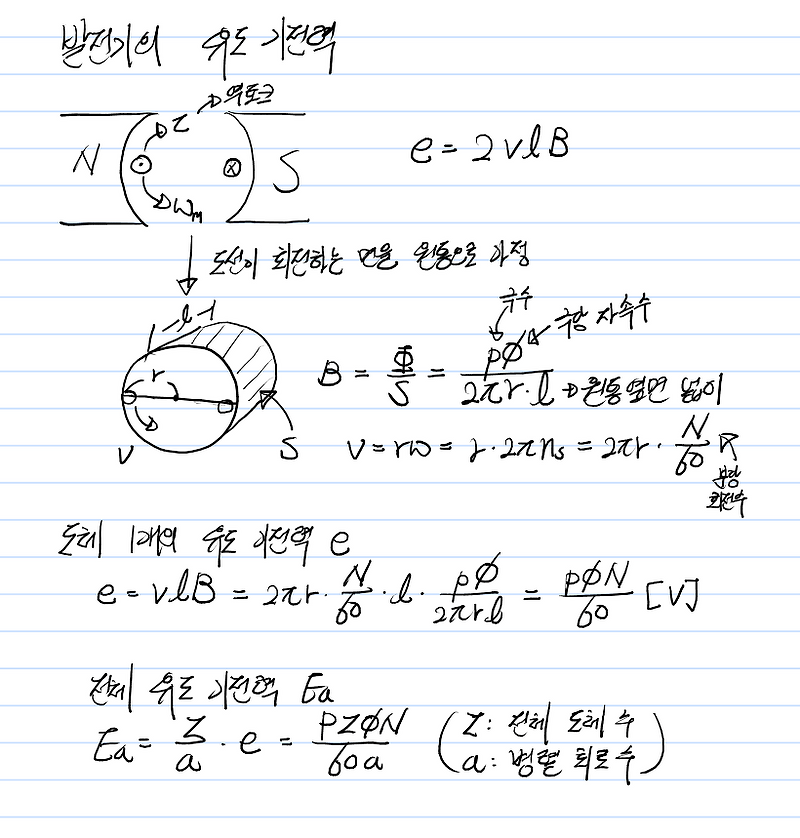 발전기의 유도 기전력
τ → 역토크
N
S
ωm
e = 2vlB
도선이 회전하는 면을 원통으로 가정
l
r
v
S
극수
극당 자속수
B = Φ/S = pφ/2πr·l → 원통 옆면 넓이
v = rω = r·2πns = 2πr·N/60
분당
회전수
도체 1개의 유도 기전력 e
e = vlB = 2πr·N/60·l·pφ/2πrl = pφN/60 [V]
전체 유도 기전력 Ea
Ea = Z/a·e = pZφN/60a (Z: 전체 도체 수
a: 병렬 회로수)